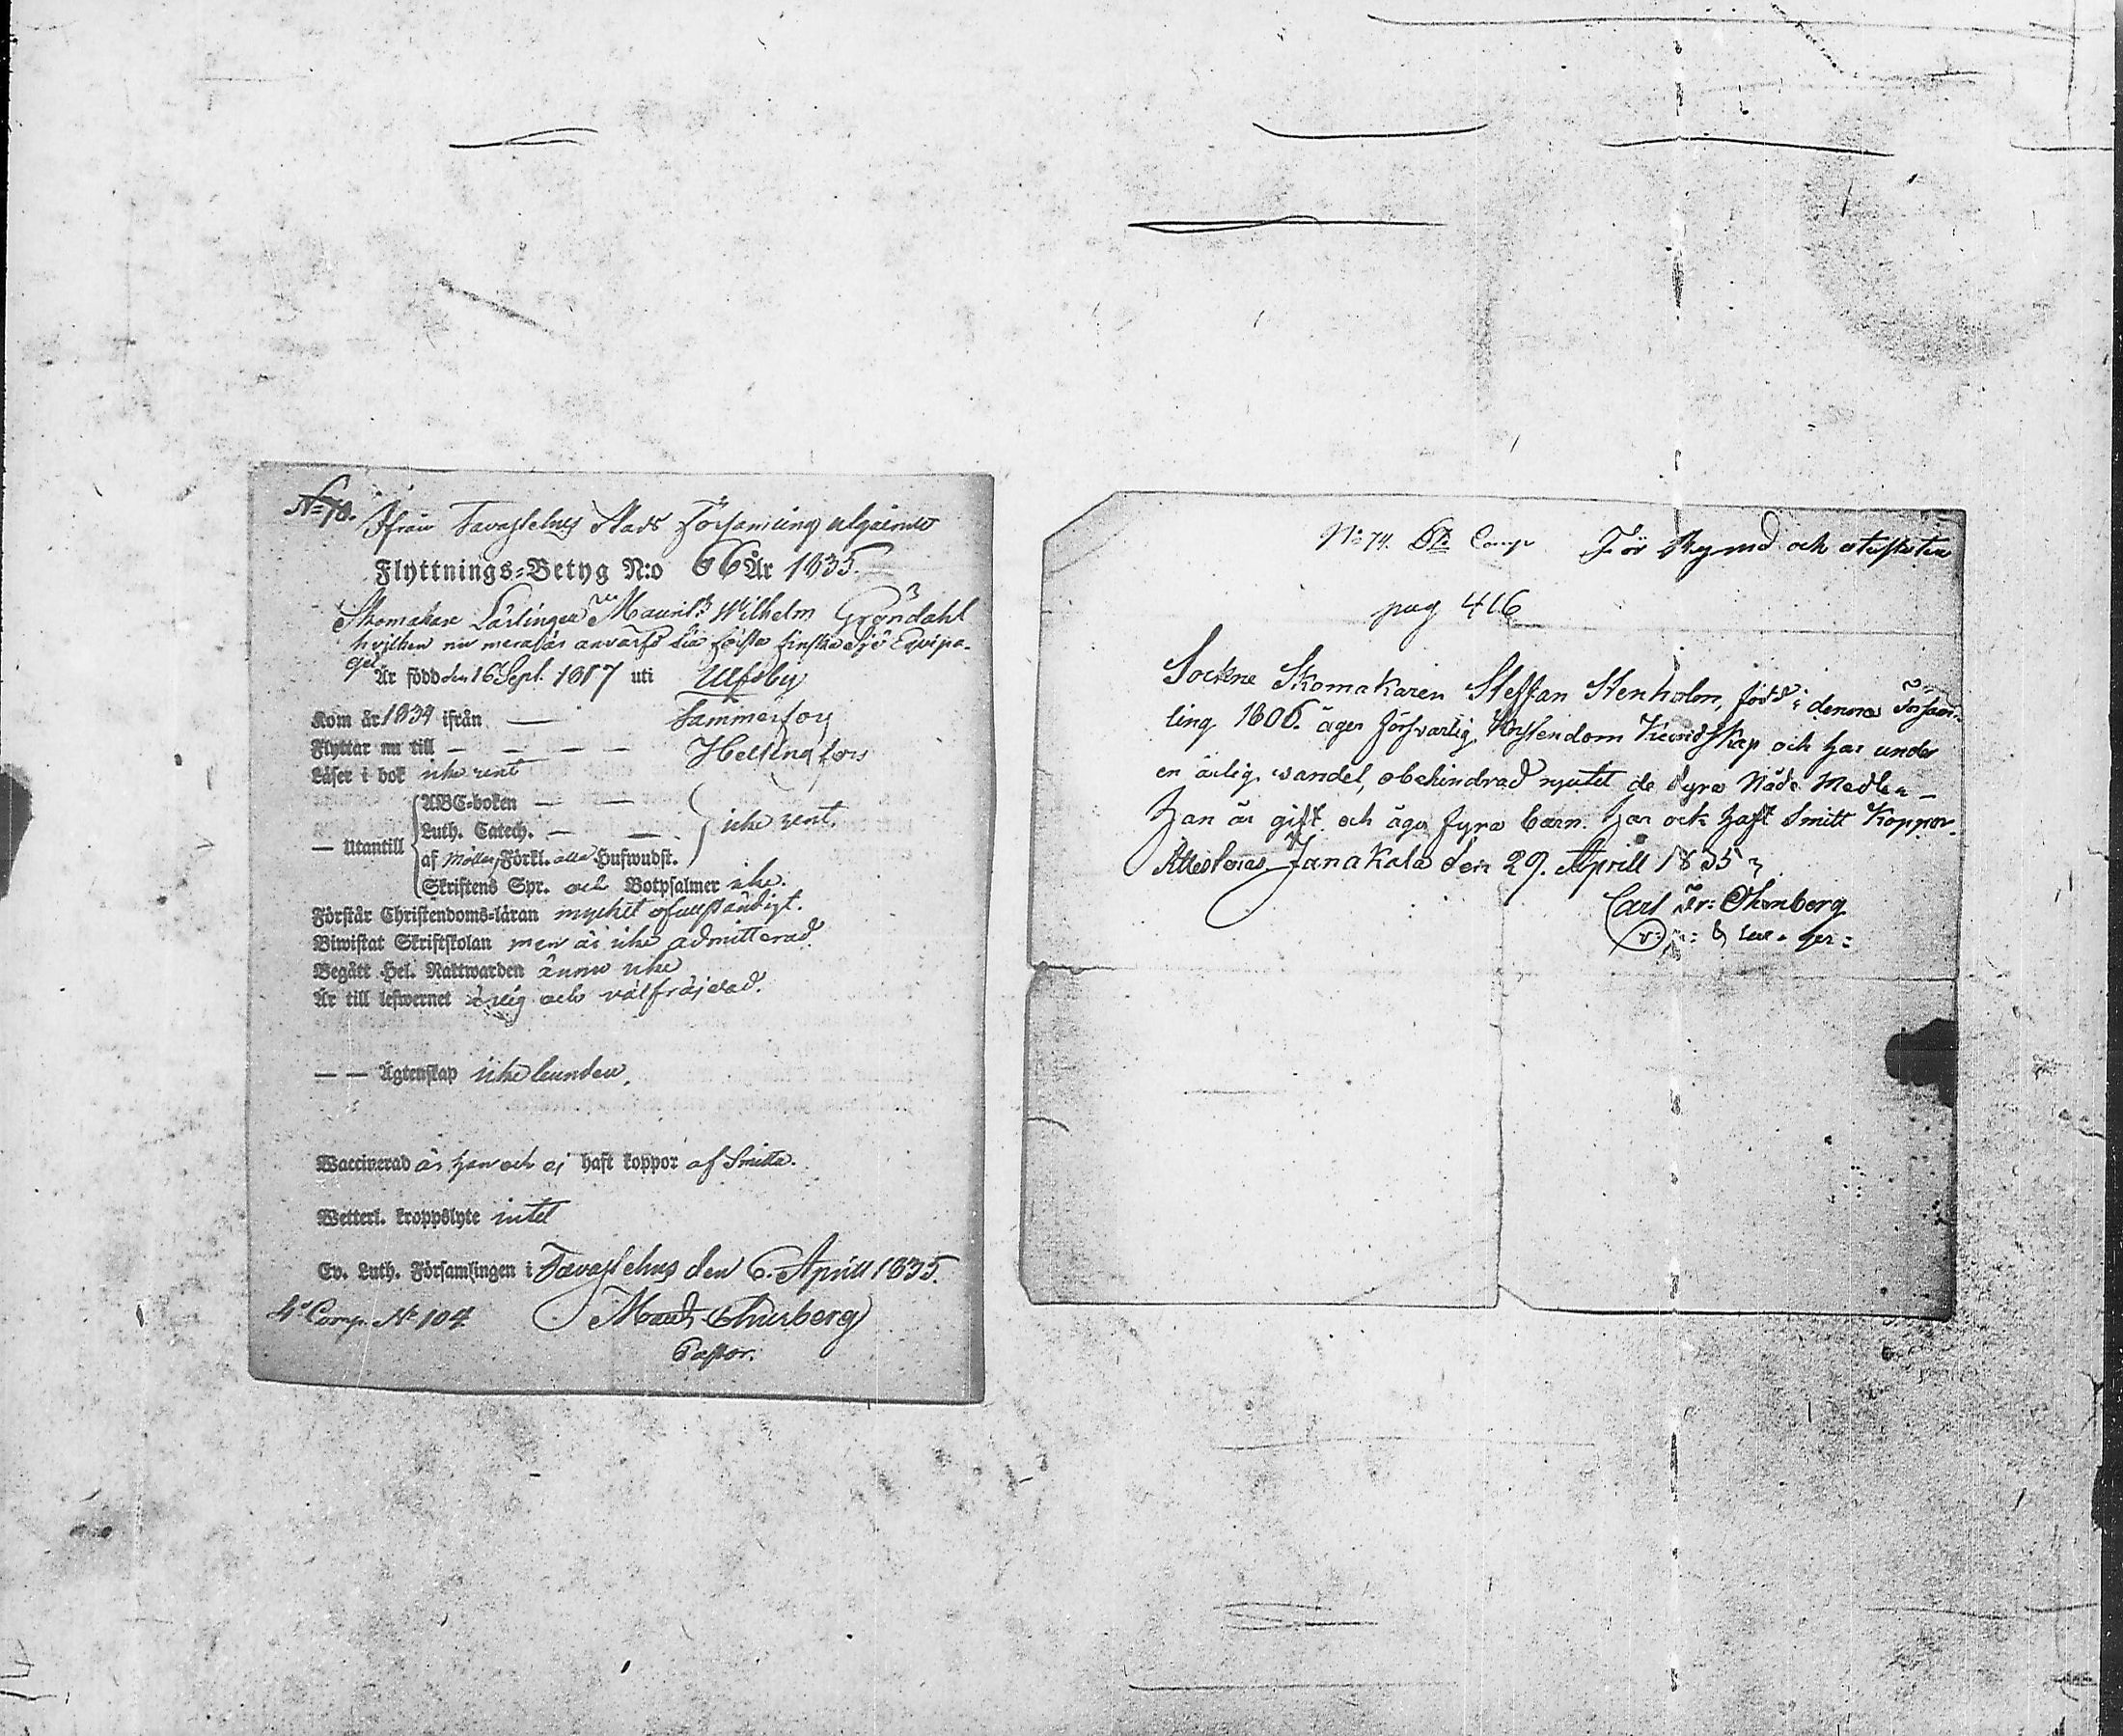 N=70.
Ifrån Tavastehus Stads Församling utgåenda
Flyttnings-Betyg N:o 66 År 1835.
Skomakare Lärlingen Maurits Wilhelm Gröndahl
hvilken nu mera är anvärfd till första finska Sjö Equipa-
get
Är född den 16 Sept. 1817 uti Ulfsby
Kom år 1834 ifrån — Tammerfors
Flyttar nu till — — — — Helsingfors
Läser i bok icke rent
— Utantill
ABC-boken — —
Luth. Catech. — — icke rent.
af Möllers Förkl. alla Hufwudst.
Skriftens Spr. och Botpsalmer icke.
Förstår Christendoms-läran mycket ofullständigt.
Biwistat Skriftskolan men är icke admitterad.
Begått Hel. Nattwarden ännu icke
Är till lefwernet och välfräjdad.
— — Ägtenskap icke bunden.
Waccinerad är han och ej haft koppor af Smitta.
Wetterl. kroppslyte intet
Ev. Luth. Församlingen i Tavastehus den 6. Aprill 1835.
4de Comp. No 104
Pastor.
No 74. 6te Comp För Rymd och
pag 416
Sockne Skomakaren Steffan Stenholm, född i denna Försam-
ling 1806. äger försvarlig Kristendom Kundskap och har under
en ärlig vandel, obehindrad njutit de dyra Nåde Medlen —
Han är gift och äger fyra barn. Har ock haft Smitt Koppor.
Attesteras Janakala den 29. Aprill 1835
Carl Fr: